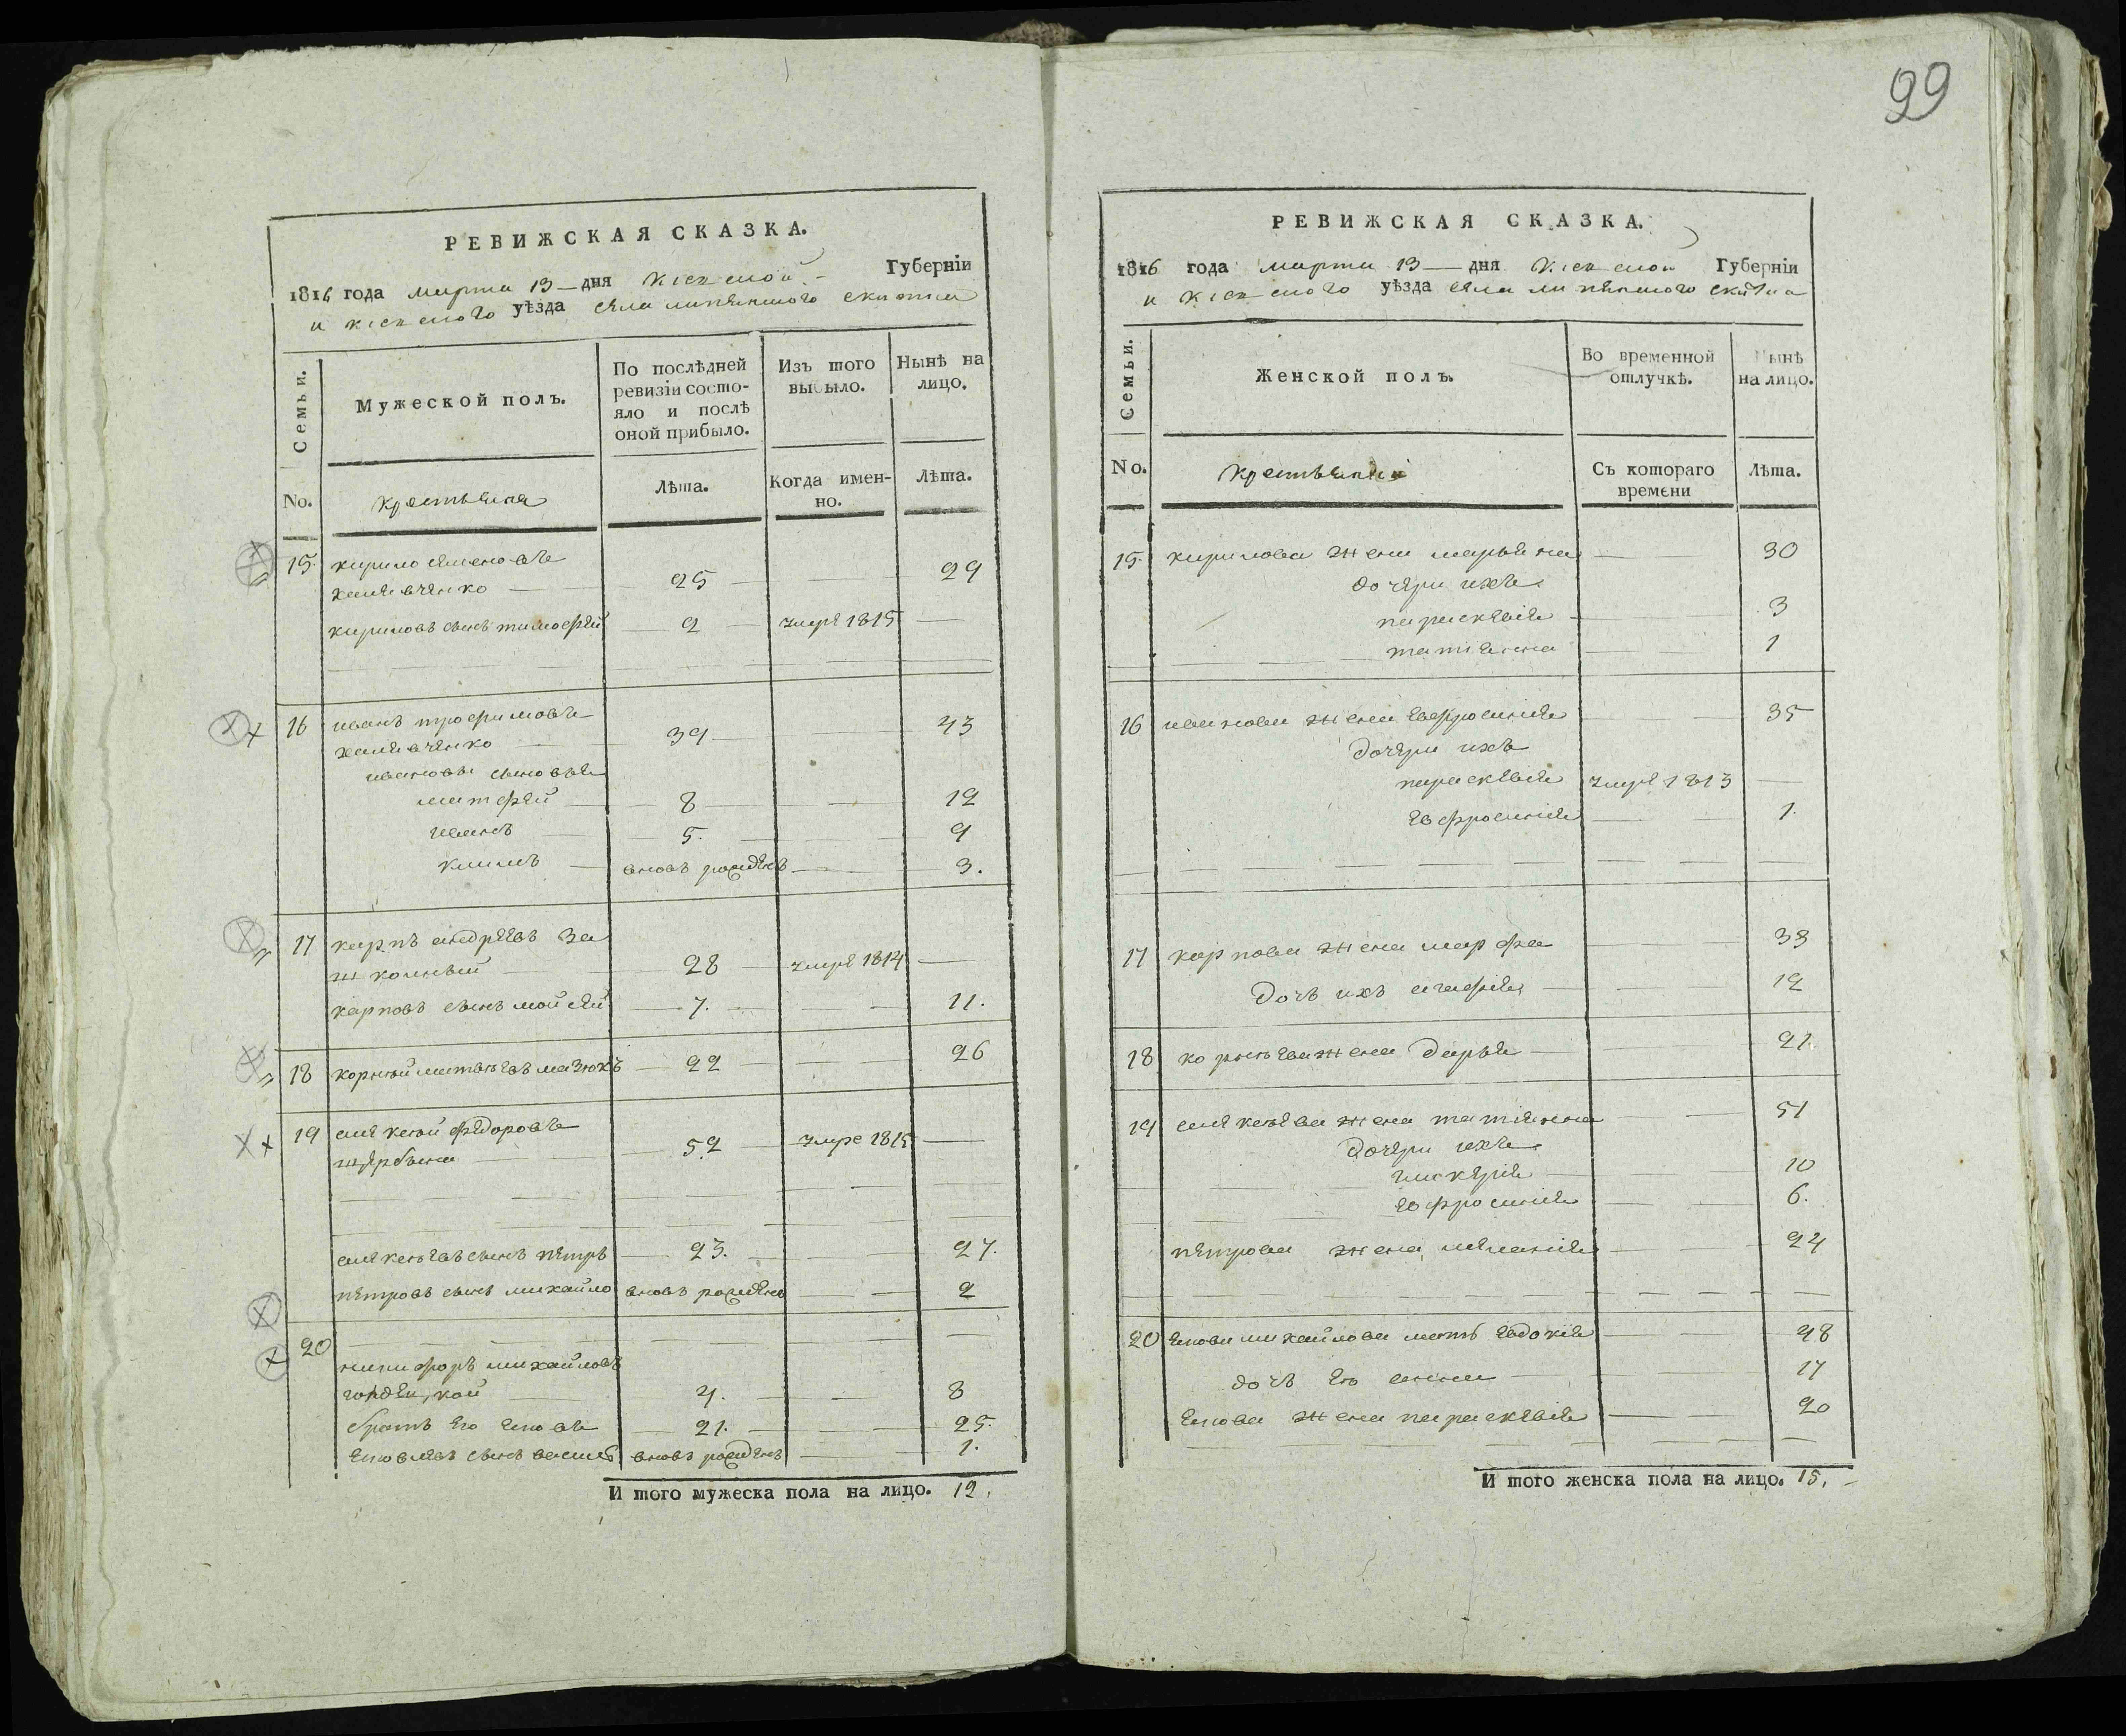 РЕВИЖСКАЯ СКАЗКА.
1816 года марта 13 дня Кіевской Губерніи
и кіевского уѣзда села липецкого скитка
Семьи.
No.
Мужеской полъ.
По послѣдней
ревизіи состо-
яло и послѣ
оной прибыло.
Изъ того
выбыло.
Нынѣ на
лицо.
крестьяне
Лѣта.
Когда имен-
но.
Лѣта.
15 кирило семеновъ
халявченко 25 29
кириловъ сынъ тимофей 2 умре 1815
16 иванъ трофимовъ
халявченко 39 43
ивановы сыновья
матфей 8 12
иванъ 5. 9
климъ вновь рожденъ 3.
17 карпъ андреевъ За
школный 28 умре 1814
карповъ сынъ мойсей 7. 11.
18 корнѣй матвѣевъ мазюкъ 22 26
19 алексѣй федоровъ
щербына 52 умре 1815
алексѣевъ сынъ петръ 23. 27.
петровъ сынъ михайло вновь рожденъ 2
20
никифоръ михайловъ
4. 8
братъ его яковъ 21. 25.
яковлевъ сынъ василь вновь рожденъ 1.
И того мужеска пола на лицо. 12.
99
РЕВИЖСКАЯ СКАЗКА.
1816 года марта 13 дня Кіевской Губерніи
и кіевского уѣзда села липецкого скитка
Семьи.
No.
Женской полъ.
Во временной
отлучкѣ.
Нынѣ
на лицо.
крестьянки
Съ котораго
времени
Лѣта.
15. кирилова жена марьяна 30
дочери ихъ
параскевія 3
татіянна 1
16 иванова жена евфросинія 35
дочери ихъ
параскевія умре 1813
евфросинія 1.
17 карпова жена марфа 33
дочь ихъ агафія 12
18 корнѣева жена дарья 21.
19 алексѣева жена татіянна 51
дочери ихъ
гликерія 10
ефросинія 6.
петрова жена меланія 24
20 якова михайлова мать евдокія 48
дочь ею анна 17
якова жена параскевія 20
И того женска пола на лицо. 15.